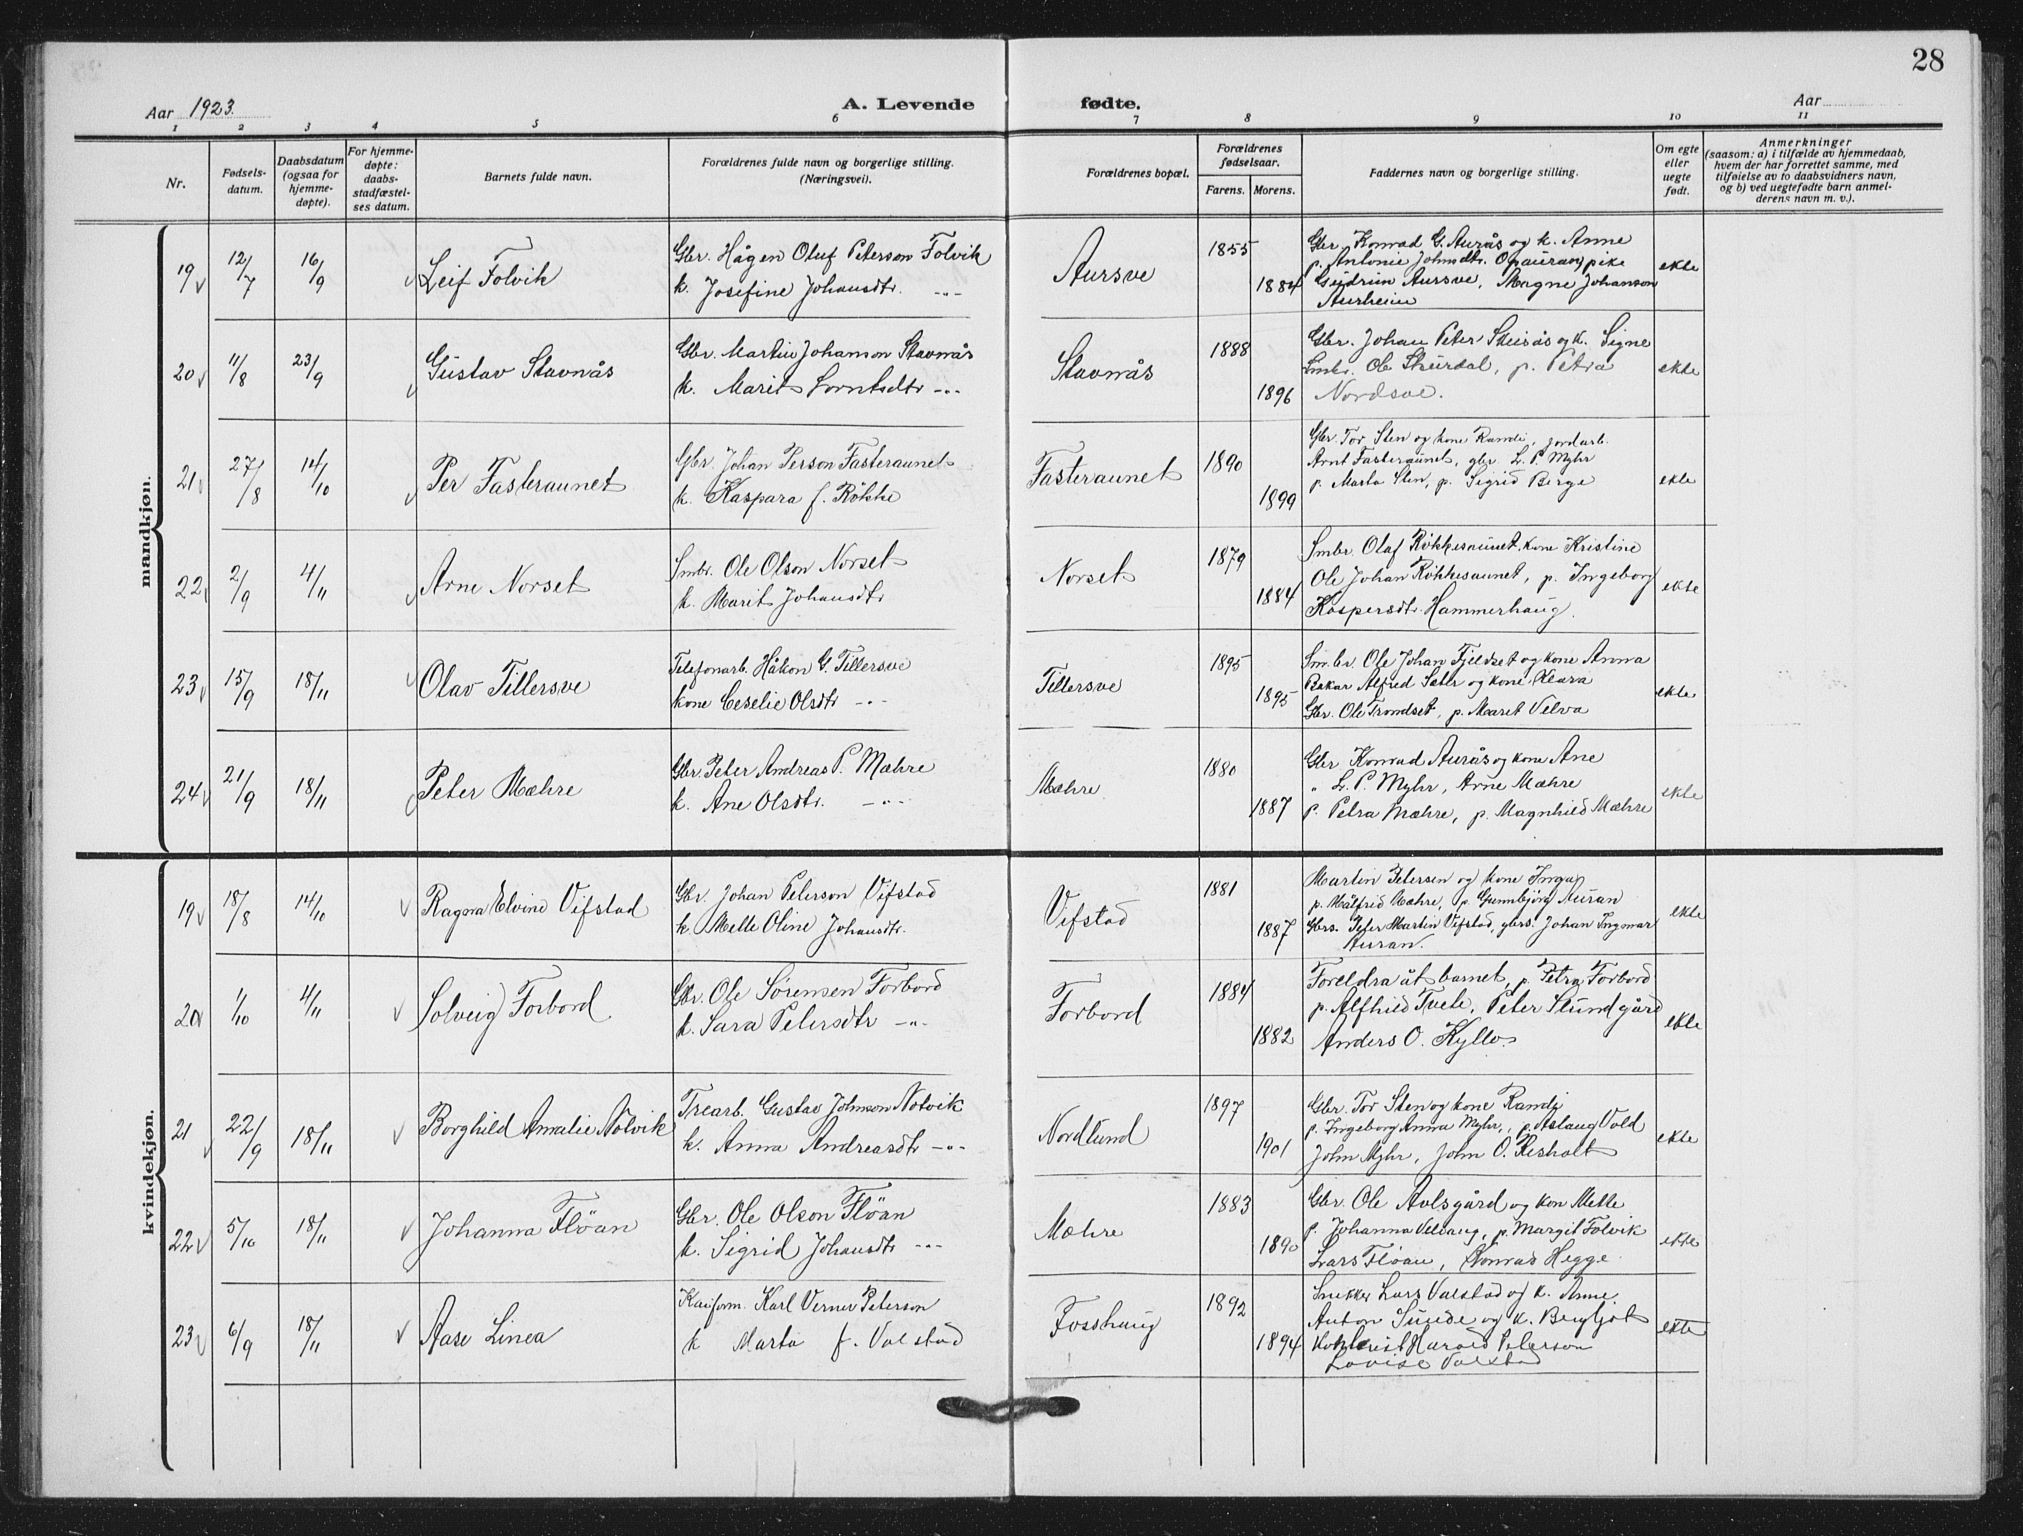 28
Aar 1923.
A. Levende
fødte.
Aar
1 2 3 4 5 6 7 8 9 10 11
Nr.
Fødsels-
datum.
Daabsdatum
(ogsaa for
hjemme-
døpte).
For hjemme-
døpte:
daabs-
stadfæstel-
ses datum.
Barnets fulde navn.
Forældrenes fulde navn og borgerlige stilling.
(Næringsvei).
Forældrenes bopæl.
Forældrenes
fødselsaar.
Farens. Morens.
Faddernes navn og borgerlige stilling.
Om egte
eller
uegte
født.
Anmerkninger
(saasom: a) i tilfælde av hjemmedaab,
hvem der har forrettet samme, med
tilføielse av to daabsvidners navn,
og b) ved uegtefødte barn anmel-
derens navn m. v.).
mandkjøn.
19 12/7 16/9 Leif Folvik
Gbr. Hågen Oluf Peterson Folvik
k. Josefine Johansdtr. -"-
Aursve
1855
1884
Gbr. Konrad G. Aurås og k. Anne
p. Antonie Johnsdtr. pike
Gudrun Aursve, Magne Johanson
Aurheim
ekte
20 11/8 23/9 Gustav Stavnås
Gbr. Martin Johanson Stavnås
k. Marit Lorntsdtr -"-
Stavnås
1888
1896
Gbr. Johan Peter Steisås og k. Signe
Smbr. Ole Skurdal, p. Petra
Nordsve.
ekte
21 27/8 14/10 Per Fasteraunet
Gbr. Johan Person Fasteraunet
k. Kaspara f. Røkke
Fasteraunet
1890
1899
Gbr. Tor Sten og kone Randi, jordarb.
Arnt Fasteraunet, gbr. L. P. Myhr
p. Marta Sten, p. Sigrid Berge
ekte
22 2/9 4/11 Arne Norset
Smbr. Ole Olson Norset
k. Marit Johansdtr
Norset
1879
1884
Smbr. Olaf Røkkesaunet, kone Kristine
Ole Johan Røkkesaunet, p. Ingeborg
Kaspersdtr. Hammerhaug.
ekte
23 15/9 18/11 Olav Tillersve
Telefonarb. Håkon G. Tillersve
kone Ceselie Olsdtr -"-
Tillersve
1895
1895
Smbr. Ole Johan Fjeldset og kone Anna
Bakar Alfred Sæter og kone Klara
Gbr. Ole Trondset, p. Maret Velva
ekte
24 21/9 18/11 Peter Mæhre
Gbr. Peter Andreas P. Mæhre
k. Ane Olsdtr. -"-
Mæhre
1880
1887
Gbr. Konrad Aurås og kone Ane
" L. P. Myhr, Arne Mæhre
p. Petra Mæhre, p. Magnhild Mæhre
ekte
kvindekjøn.
19 18/8 14/10 Ragna Elvine Vifstad
Gbr. Johan Peterson Vifstad
k. Mette Oline Johansdtr.
Vifstad
1881
1887
Martin Petersen og kone Inga
p. Målfrid Mæhre, p. Gunnbjørg Auran
Gbrs. Peter Martin Vifstad, gbrs. Johan Ingmar
Auran.
ekte
20 1/10 4/11 Solveig Forbord
Gbr. Ole Sørensen Forbord
k. Sara Petersdtr -"-
Forbord
1884
1882
Foreldra åt barnet, p. Petra Forbord
p. Alfhild Tvete, Peter Slundgård
Anders O. Kyllo.
ekte
21 22/9 18/11 Borghild Amalie Nolvik
Trearb. Gustav Johnson Nolvik
k. Anna Andreasdtr -"-
Nordlund
1897
1901
Gbr. Tor Sten og kone Randi
p. Ingeborg Anna Myhr, p. Aslaug Vold
John Myhr, John O. Resholt
ekte
22 5/10 18/11 Johanna Fløan
Gbr. Ole Olson Fløan
k. Sigrid Johansdtr -"-
Mæhre
1883
1890
Gbr. Ole Avlsgård og kon Mette
p. Johanna Velvang, p. Margit Folvik
Lars Fløan, Konrad Hegge
ekte
23 6/9 18/11 Aase Linea
Karl Verner Peterson
k Marta f. Valstad
Fosshaug
1892
1894
Snekker Lars Valstad og k. Anne
Anton Sunde og k. Bergljot
Harald Peterson
Lovise Valstad
ekte